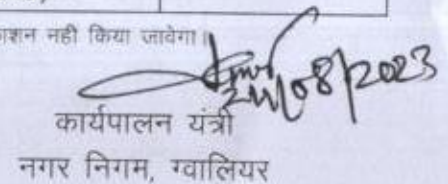 काशन नही किया जावेगा।
24/08/2023
कार्यपालन यंत्री
नगर निगम, ग्वालियर